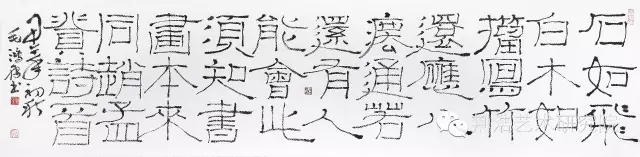 石如飛
白木如
籀寫竹
還應八
法通若
還有人
能會此
須知書
畫本來
同趙孟
詩首
初秋
艺术研究院